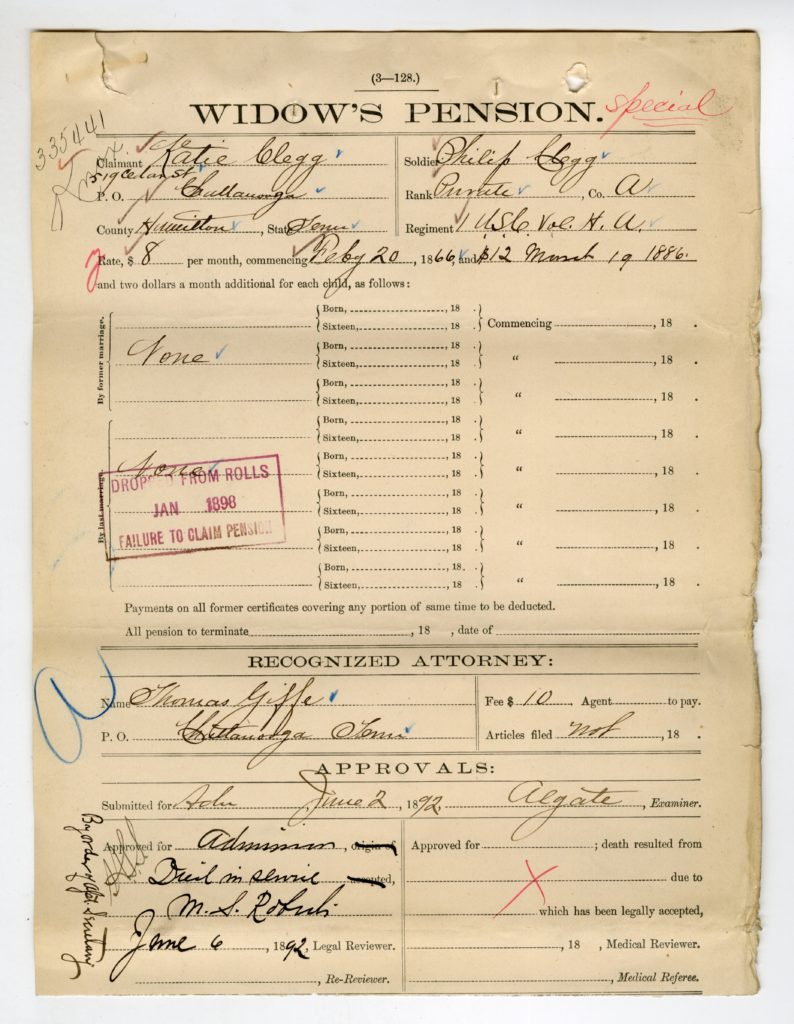 (3—128.)
WIDOW'S PENSION. Special
335441
Claimant Katie Clegg
Soldier Philip Clegg
P. O. Chattanooga
Rank Private, Co. A
County Hamilton, State Tenn
Regiment 1 U.S.C. Vol. H. A.
Rate, $ 8 per month, commencing Feby 20, 1866, and $12 March 19 1886.
and two dollars a month additional for each child, as follows:
By former marriage.
Born, , 18 .
Sixteen, , 18 . Commencing , 18 .
None
Born, , 18 .
Sixteen, , 18 . “ , 18 .
Born, , 18 .
Sixteen, , 18 . “ , 18 .
By last marriage.
Born, , 18 .
Sixteen, , 18 . “ , 18 .
None
Born, , 18 .
Sixteen, , 18 . “ , 18 .
Born, , 18 .
Sixteen, , 18 . “ , 18 .
Born, , 18 .
Sixteen, , 18 . “ , 18 .
Born, , 18 .
Sixteen, , 18 . “ , 18 .
DROPPED FROM ROLLS
JAN 1898
FAILURE TO CLAIM PENSION
Payments on all former certificates covering any portion of same time to be deducted.
All pension to terminate , 18 , date of
RECOGNIZED ATTORNEY:
Name Thomas Giffe
Fee $ 10 Agent to pay.
P. O. Chattanooga Tenn
Articles filed not , 18 .
APPROVALS:
Submitted for Adm June 2, 1892, Algate, Examiner.
Approved for Admission, origin of
Died in service accepted,
M. S. Roberts
June 6, 1892, Legal Reviewer.
, Re-Reviewer.
Approved for ; death resulted from
due to
X
which has been legally accepted,
, 18 , Medical Reviewer.
, Medical Referee.
By order of Asst. Secretary
a